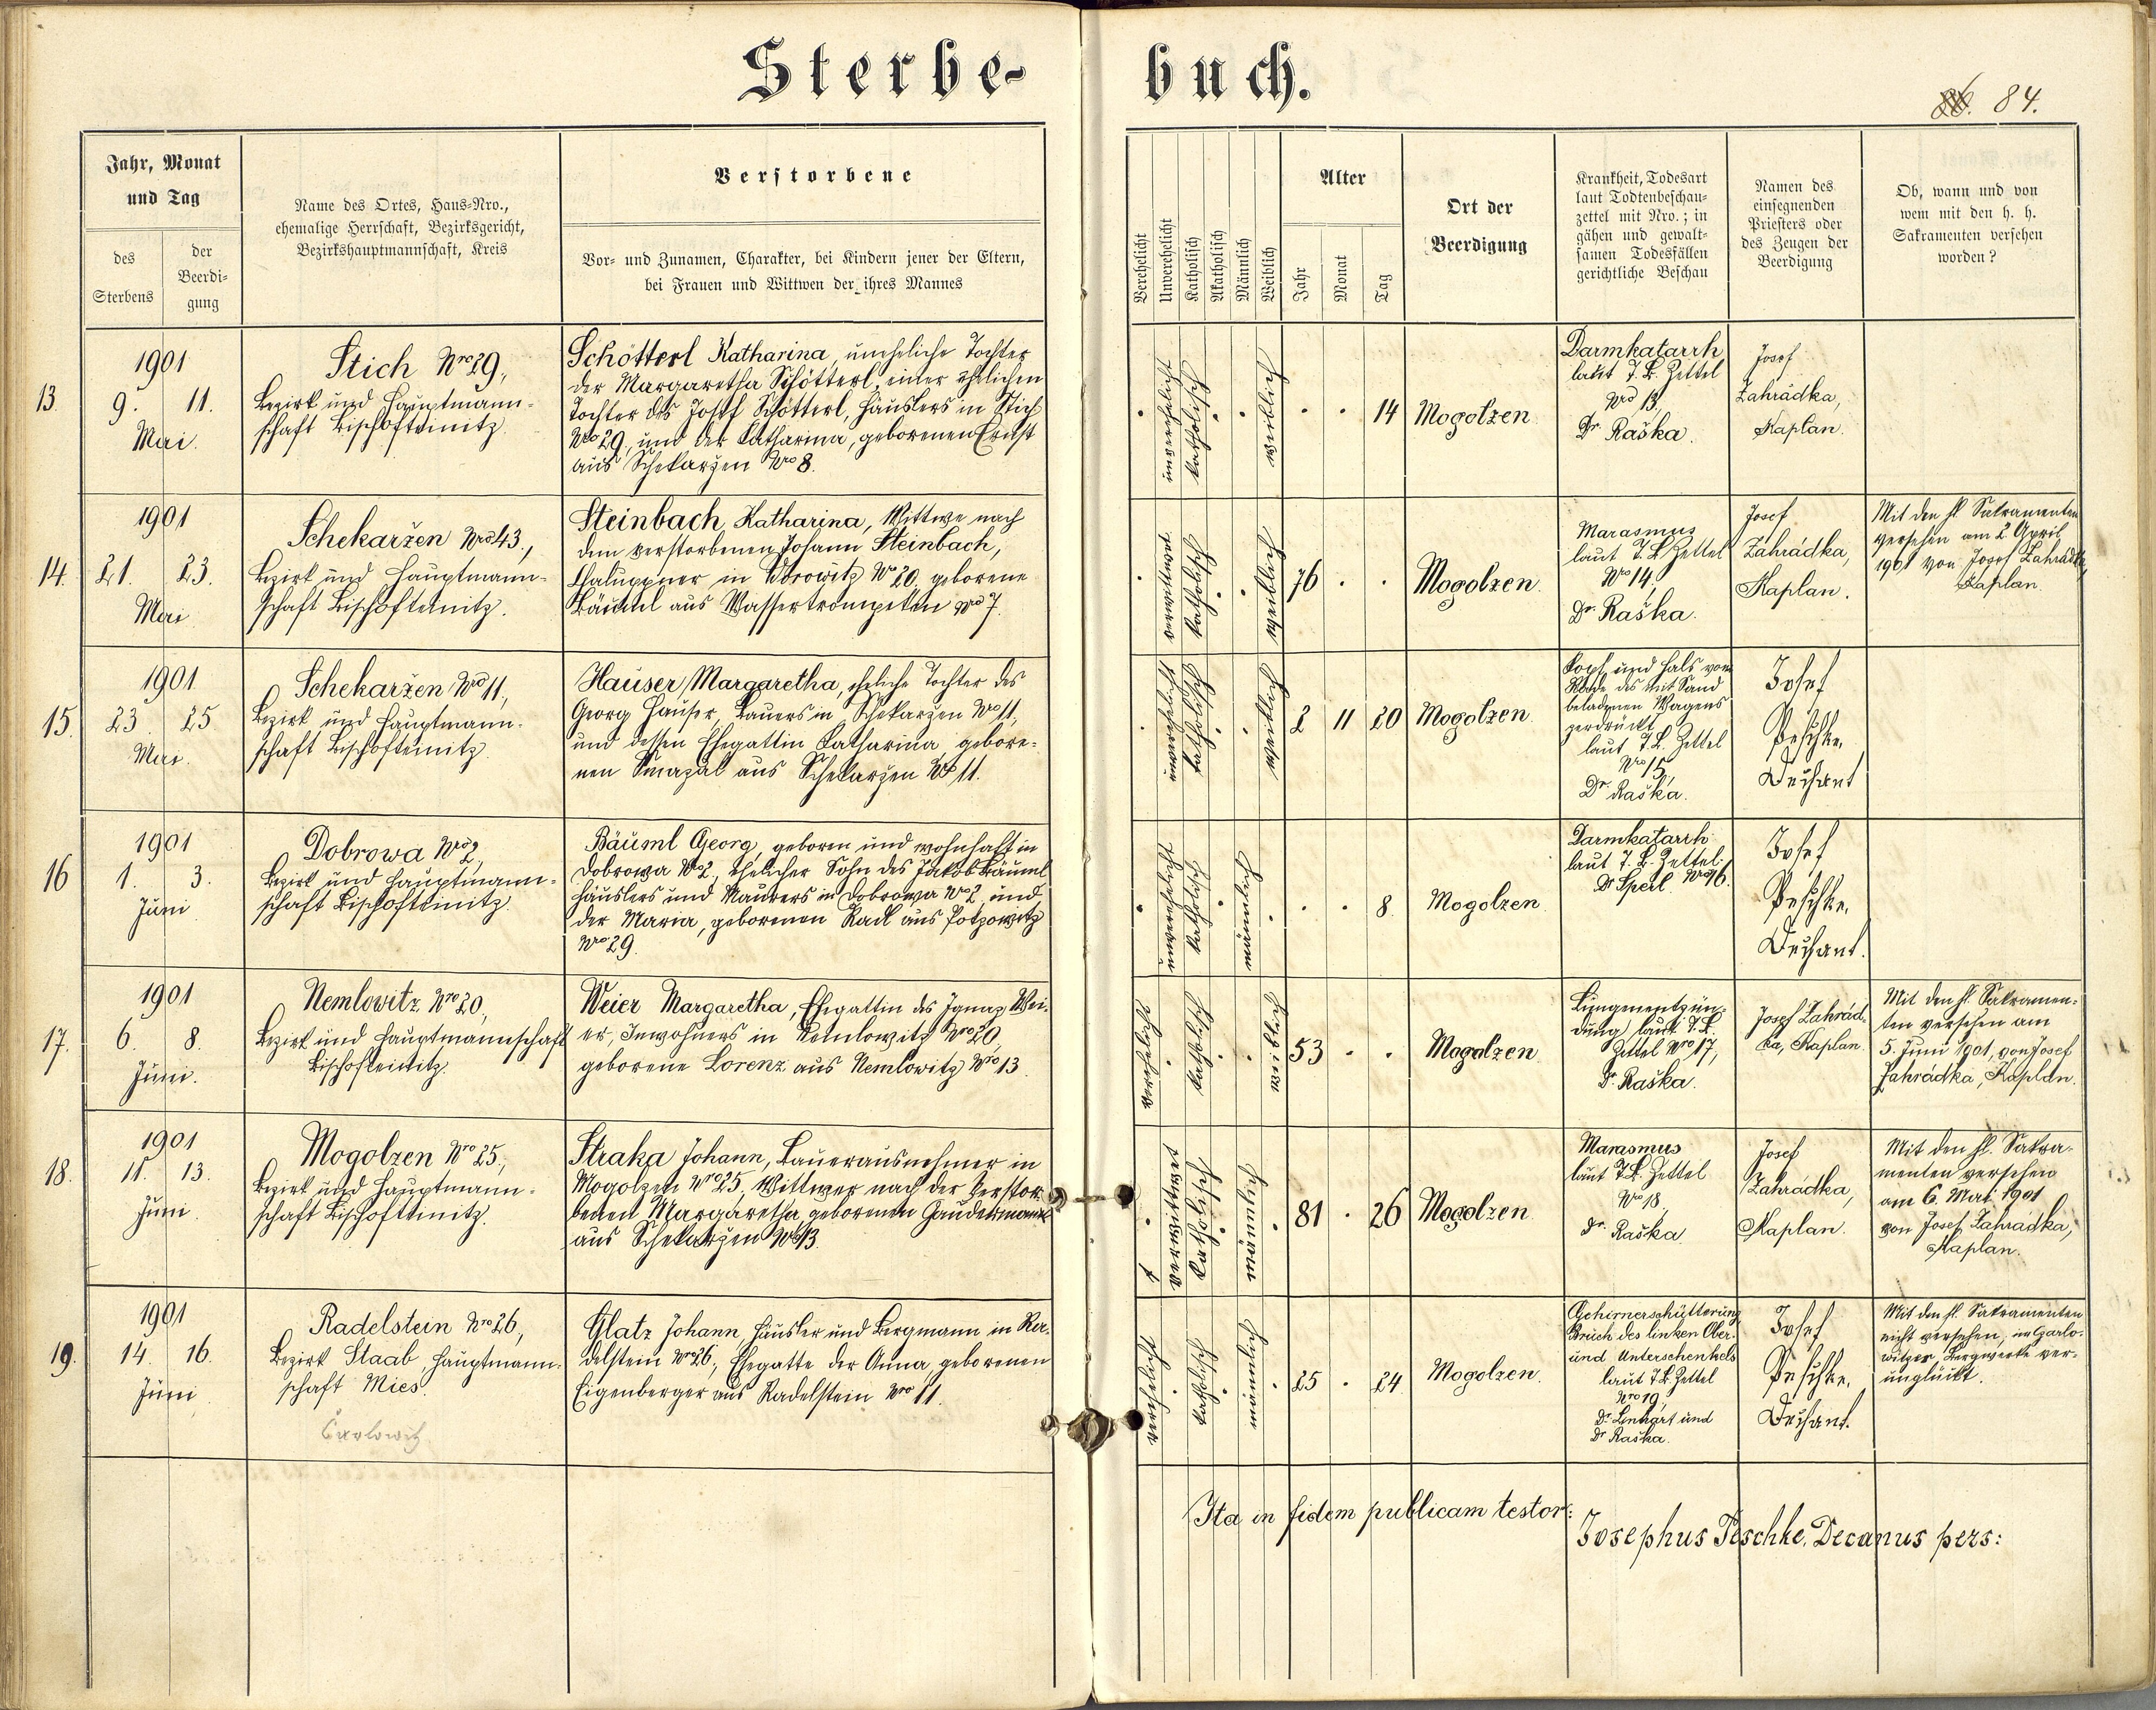 Sterbe-
buch.
84.
Jahr, Monat
und Tag
des
Sterbens
der
Beerdi-
gung
Name des Ortes, Haus-Nro.,
ehemalige Herrschaft, Bezirksgericht,
Bezirkshauptmannschaft, Kreis
Verstorbene
Vor- und Zunamen, Charakter, bei Kindern jener der Eltern,
bei Frauen und Wittwen der ihres Mannes
Verehelicht
Unverehelicht
Katholisch
Akatholisch
Männlich
Weiblich
Alter
Jahr
Monat
Tag
Ort der
Beerdigung
Krankheit, Todesart
laut Todtenbeschau-
zettel mit Nro.; in
gähen und gewalt-
samen Todesfällen
gerichtliche Beschau
Namen des
einsegnenden
Priesters oder
des Zeugen der
Beerdigung
Ob, wann und von
wem mit den h. h.
Sakramenten versehen
worden?
13.
1901
9. 11.
Mai.
Stich Nro 29,
Bezirk und Hauptmann-
schaft Bischofteinitz.
Schötterl Katharina, uneheliche Tochter
der Margaretha Schötterl, einer ehelichen
Tochter des Josef Schötterl, Häuslers in Stich
Nro 29, und der Katharina, geborenen Ernst
aus Schekaržen Nro 8.
unverehelicht
katholisch
weiblich
14
Mogolzen.
Darmkatarrh
laut T. B. Zettel
Nro 13,
Dr. Raška.
Josef
Zahrádka,
Kaplan.
14.
1901
21. 23.
Mai
Schekaržen Nro 43,
Bezirk und Hauptmann-
schaft Bischofteinitz.
Steinbach Katharina, Wittwe nach
dem verstorbenen Johann Steinbach,
Chaluppner in Nro 20, geborene
Bäuml aus Wassertrompeten Nro 7.
verwittwet
katholisch
weiblich
76
Mogolzen.
Marasmus
laut T. B. Zettel
Nro 14,
Dr. Raška.
Josef
Zahrádka,
Kaplan.
Mit den hl. Sakramenten
versehen am 2. April
1901 von Josef Zahrádka,
Kaplan.
15.
1901
23. 25.
Mai.
Schekaržen Nro 11,
Bezirk und Hauptmann-
schaft Bischofteinitz.
Hauser Margaretha, eheliche Tochter des
Georg Hauser, Bauers in Schekaržen Nro 11,
und dessen Ehegattin Katharina gebore-
nen Smazal aus Schekaržen Nro 11.
unverehelicht
katholisch
weiblich
2 11 20
Mogolzen.
Kopf und Hals vom
Rade des mit Sand
beladenen Wagens
zerdrückt
laut T. B. Zettel
Nro 15,
Dr. Raška.
Josef
Peschke,
Dechant
16
1901
1. 3.
Juni
Dobrowa Nro 2,
Bezirk und Hauptmann-
schaft Bischofteinitz.
Bäuml Georg, geboren und wohnhaft in
Dobrowa Nro 2, ehelicher Sohn des Jakob Bäuml
Häuslers und Maurers in Dobrowa Nro 2, und
der Maria, geborenen Radl aus Potzowitz
Nro 29.
unverehelicht
katholisch
männlich
8.
Mogolzen
Darmkatarrh
laut T. B. Zettel
Dr Sperl. Nro 16.
Josef
Peschke,
Dechant.
17.
1901
6. 8.
Juni.
Nemlowitz Nro 20,
Bezirk und Hauptmannschaft
Bischofteinitz.
Weier Margaretha, Ehegattin des Ignaz Wei-
er, Inwohners in Nemlowitz Nro 20,
geborene Lorenz aus Nemlowitz Nro 13.
verehelicht
katholisch
weiblich
53
Mogolzen.
Lungenentzün-
dung laut T. B.
Zettel Nro 17,
Dr. Raška.
Josef Zahrád-
ka, Kaplan.
Mit den hl. Sakramen-
ten versehen am
5. Juni 1901, von Josef
Zahrádka, Kaplan.
18.
1901
11. 13.
Juni
Mogolzen Nro 25,
Bezirk und Hauptmann-
schaft Bischofteinitz.
Straka Johann, Bauerausnehmer in
Mogolzen Nro 25, Wittwer nach der verstor-
benen Margaretha geborenen Gaudermann
aus Schekaržen Nro 13.
verwittwet
katholisch
männlich
81 26
Mogolzen
Marasmus
laut T. B. Zettel
Nro 18,
Dr. Raška
Josef
Zahrádka,
Kaplan.
Mit den hl. Sakra-
menten versehen
am 6. Mai 1901
von Josef Zahrádka,
Kaplan.
19.
1901
14. 16.
Juni
Radelstein Nro 26,
Bezirk Staab, Hauptmann-
schaft Mies.
Glatz Johann, Häusler und Bergmann in Ra-
delstein Nro 26, Ehegatte der Anna, geborenen
Eigenberger aus Radelstein Nro 11.
verehelicht
katholisch
männlich
25 24
Mogolzen.
Gehirnerschütterung
Bruch des linken Ober-
und Unterschenkels
laut T. B. Zettel
Nro 19,
Dr. Lenhart und
Dr Raška.
Josef
Peschke,
Dechant.
Mit den hl. Sakramenten
nicht versehen, im Garlo-
witzer Bergwerke ver-
unglückt.
Ita in fidem publicam testor:
Josephus Peschke, Decanus pers: